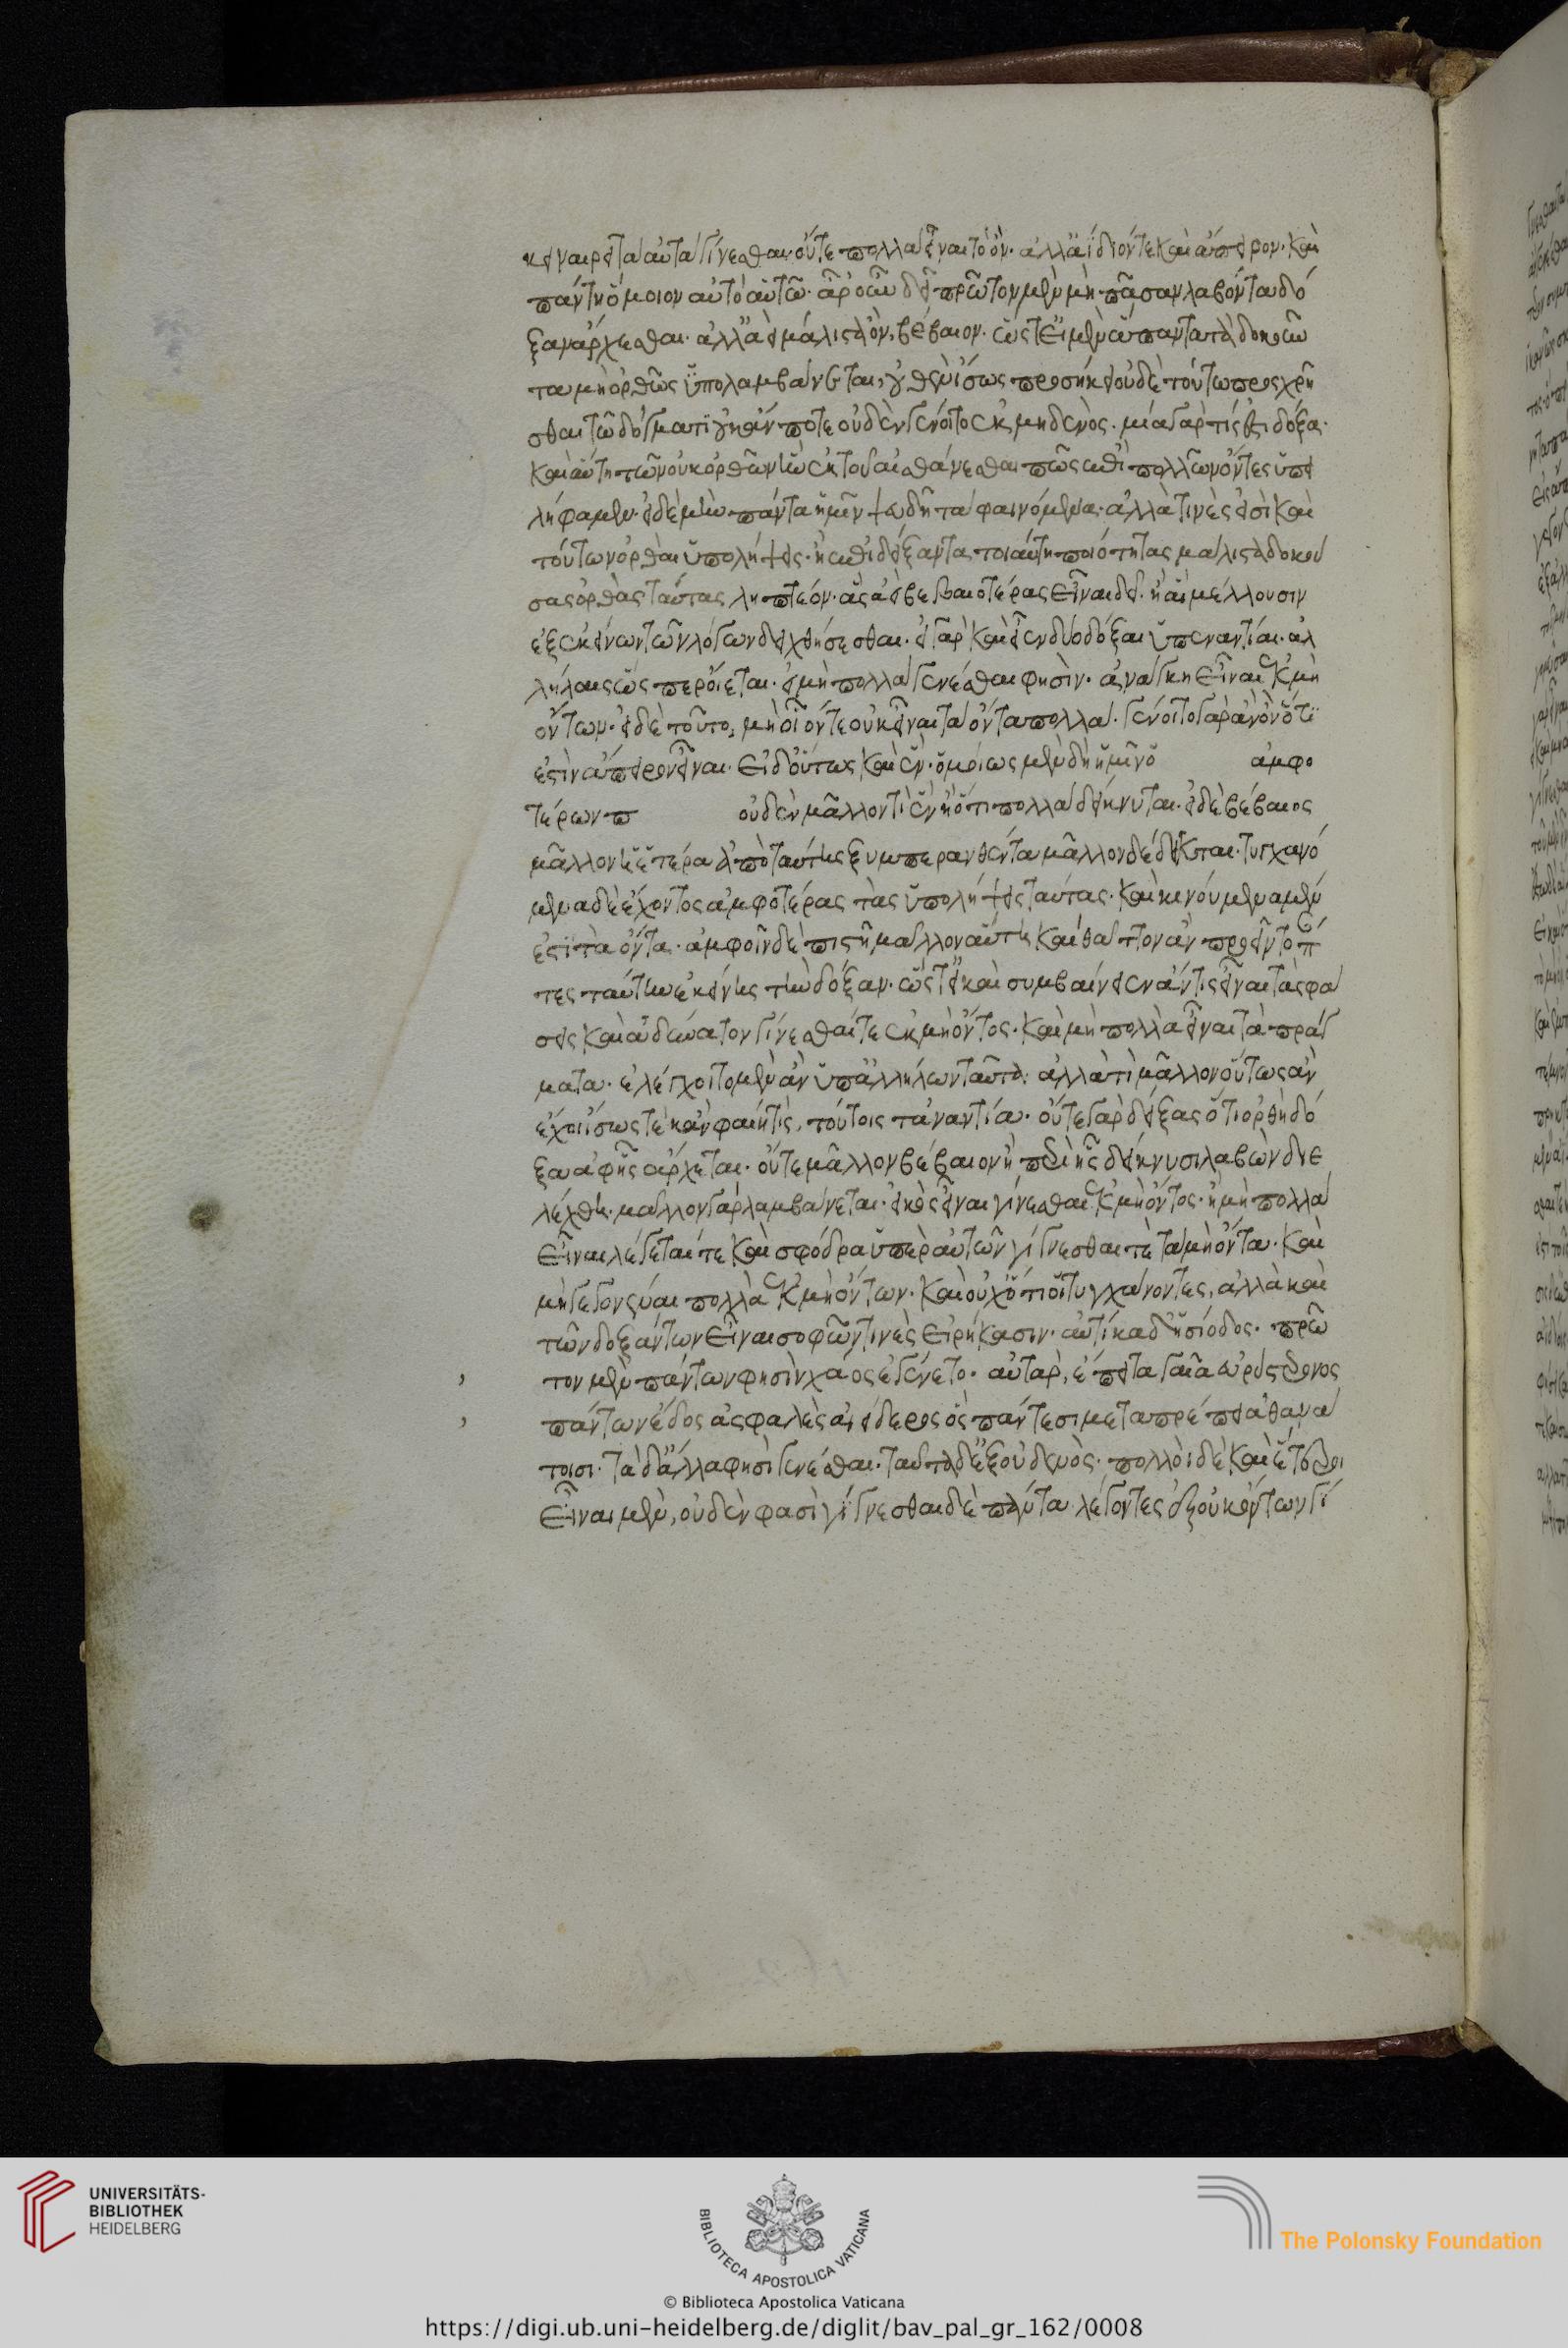 κειναιρεῖτα αὐτὰ γίνεσθαι· οὔτε πολλὰ εἶναι τὸ ὄν· ἀλλ' ἀΐδιόν τε καὶ ἄπειρον· καὶ
πάντη ὅμοιον αὐτὸ αὑτῶ· ἆρ' οὖν δεῖ πρῶτον μὲν μὴ πᾶσαν λαβόντα δό
ξαν ἄρχεσθαι· ἀλλ' ἃ εἰ μάλιστα ὄν, βέβαιον· ὥστ' εἰ μὲν ἅπαντα τὰ δοκοῦν
τα μὴ ὀρθῶς ὑπολαμβάνεται, οὐθὲν ἴσως προσήκει οὐδὲ τούτω προσχρῆ
σθαι τῶ δόγματι οὐκ ἄν ποτε οὐδὲν γένοιτο ἐκ μηδενός· μία γάρ τίς ἐστι δόξα·
καὶ αὕτη τῶν οὐκ ὀρθῶν ἣν ἐκ τοῦ αἰσθάνεσθαι πως ἐπὶ πολλῶν ὄντες ὑπει
λήφαμεν· εἰ δὲ μὴ πάντα ἡμῖν ψευδῆ τὰ φαινόμενα· ἀλλά τινές εἰσι καὶ
τούτων ὀρθαὶ ὑπολήψεις· ἢ ἐπιδείξαντα τοιαύτη ποιότητας μάλιστα δοκού
σας ὀρθὰς ταύτας ληπτέον· ἃς ἀεὶ βεβαιοτέρας εἶναι δεῖ· ἢ αἳ μέλλουσιν
ἐξ ἐκείνων τῶν λόγων δειχθήσεσθαι· εἰ γὰρ καὶ εἶεν δύο δόξαι ὑπεναντίαι· ἀλ
λήλαις ὥσπερ οἴεται· εἰ μὴ πολλὰ γενέσθαι φησίν· ἀνάγκη εἶναι ἐκ μὴ
ὄντων· εἰ δὲ τοῦτο, μὴ οἷόν τε οὐκ εἶναι τὰ ὄντα πολλά· γένοιτο γὰρ ἂν ὂν ὅ τι
ἐστὶν ἄπειρον εἶναι· εἰ δ' οὕτως καὶ ἕν· ὁμοίως μὲν δὴ ἡμῖν ὅ ἀμφο
τέρων π οὐδὲν μᾶλλον τι ἓν ἢ ὅτι πολλὰ δείκνυται· εἰ δὲ βέβαιος
μᾶλλον ἡ ἑτέρα ἀπὸ ταύτης ξυμπερανθέντα μᾶλλον δέδεικται· τυγχάνο
μεν δὲ ἔχοντες ἀμφοτέρας τὰς ὑπολήψεις ταύτας· καὶ κινούμενα μέν
ἐστι τὰ ὄντα· ἀμφοῖν δὲ πιστὴ μᾶλλον αὕτη καὶ θᾶττον ἂν προεῖντο πάν
τες ταύτην ἐκείνης τὴν δόξαν· ὥστ' εἰ καὶ συμβαίνει ἐναντίας εἶναι τὰς φά
σεις καὶ ἀδύνατον γίνεσθαί τε ἐκ μὴ ὄντος· καὶ μὴ πολλὰ εἶναι τὰ πράγ
ματα· ἐλέγχοιτο μὲν ἂν ὑπ' ἀλλήλων ταῦτα· ἀλλὰ τί μᾶλλον οὕτως ἂν
ἔχοι ἴσως τε κἂν φαίη τις, τούτοις τἀναντία· οὔτε γὰρ δείξας ὅτι ὀρθὴ δό
ξα ἀφ' ἧς ἄρχεται· οὔτε μᾶλλον βέβαιον ἢ περὶ ἧς δείκνυσι λαβὼν διε
λέχθη· μᾶλλον γὰρ λαμβάνεται· εἰκὸς εἶναι γίνεσθαι ἐκ μὴ ὄντος· ἢ μὴ πολλὰ
εἶναι λέγεταί τε καὶ σφόδρα ὑπὲρ αὐτῶν γίγνεσθαί τε τὰ μὴ ὄντα· καὶ
μὴ γεγονέναι πολλὰ ἐκ μὴ ὄντων· καὶ οὐχ ὅτι οἱ τυγχάνοντες, ἀλλὰ καὶ
τῶν δοξάντων εἶναι σοφῶν τινὲς εἰρήκασιν· αὐτίκα δ' ἡσίοδος· πρῶ
τον μὲν πάντων φησὶν χάος ἐγένετο· αὐτὰρ, ἔπειτα γαῖα εὐρύστερνος
πάντων ἕδος ἀσφαλὲς αἰεί δ' ἔρος ὃς πάντεσι μεταπρέπει ἀθανά
τοισι· τὰ δ' ἄλλα φησὶ γενέσθαι· ταῦτα δ' ἐξ οὐδενός· πολλοὶ δὲ καὶ ἕτεροι
εἶναι μὲν, οὐδὲν φασὶ γίγνεσθαι δὲ πάντα λέγοντες ἐξ οὐκ ὄντων γί
UNIVERSITÄTS-
BIBLIOTHEK
HEIDELBERG
BIBLIOTECA APOSTOLICA VATICANA
The Polonsky Foundation
© Biblioteca Apostolica Vaticana
https://digi.ub.uni-heidelberg.de/diglit/bav_pal_gr_162/0008